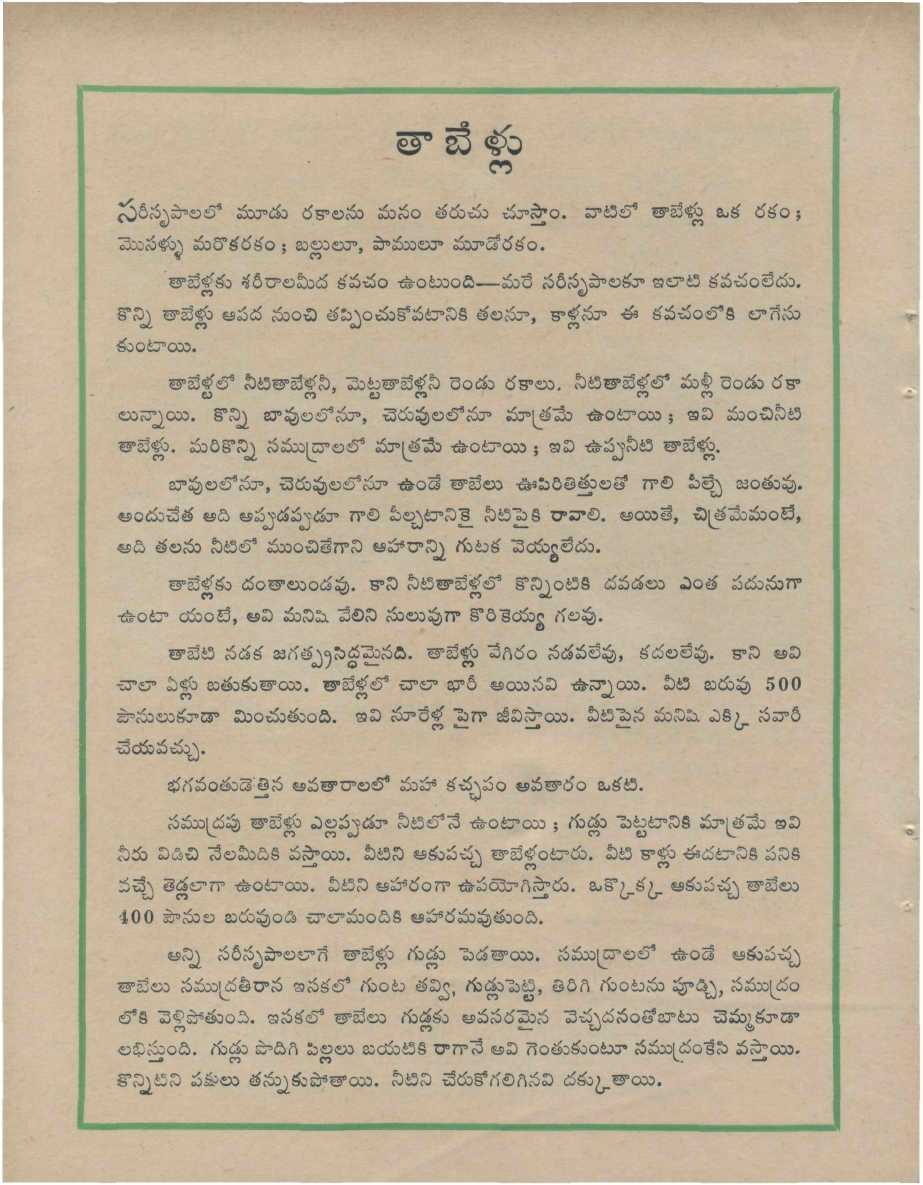 తాబేళ్లు
సరీసృపాలలో మూడు రకాలను మనం తరుచు చూస్తాం. వాటిలో తాబేళ్లు ఒక రకం;
మొసళ్ళు మరొకరకం; బల్లులూ, పాములూ మూడేరకం.
తాబేళ్లకు శరీరాలమీద కవచం ఉంటుంది—మరే సరీసృపాలకూ ఇలాటి కవచంలేదు.
కొన్ని తాబేళ్లు ఆపద నుంచి తప్పించుకోవటానికి తలనూ, కాళ్లనూ ఈ కవచంలోకి లాగేసు
కుంటాయి.
తాబేళ్లలో నీటితాబేళ్లనీ, మెట్టతాబేళ్లనీ రెండు రకాలు. నీటితాబేళ్లలో మళ్లీ రెండు రకా
లున్నాయి. కొన్ని బావులలోనూ, చెరువులలోనూ మాత్రమే ఉంటాయి; ఇవి మంచినీటి
తాబేళ్లు. మరికొన్ని సముద్రాలలో మాత్రమే ఉంటాయి; ఇవి ఉప్పునీటి తాబేళ్లు.
బావులలోనూ, చెరువులలోనూ ఉండే తాబేలు ఊపిరితిత్తులతో గాలి పీల్చే జంతువు.
అందుచేత అది అప్పుడప్పుడూ గాలి పీల్చటానికై నీటిపైకి రావాలి. అయితే, చిత్రమేమంటే,
అది తలను నీటిలో ముంచితేగాని ఆహారాన్ని గుటక వెయ్యలేదు.
తాబేళ్లకు దంతాలుండవు. కాని నీటితాబేళ్లలో కొన్నింటికి దవడలు ఎంత పదునుగా
ఉంటా యంటే, అవి మనిషి వేలిని సులువుగా కొరికెయ్య గలవు.
తాబేటి నడక జగత్ప్రసిద్ధమైనది. తాబేళ్లు వేగిరం నడవలేవు, కదలలేవు. కాని అవి
చాలా ఏళ్లు బతుకుతాయి. తాబేళ్లలో చాలా భారీ అయినవి ఉన్నాయి. వీటి బరువు 500
పౌనులుకూడా మించుతుంది. ఇవి నూరేళ్ల పైగా జీవిస్తాయి. వీటిపైన మనిషి ఎక్కి సవారీ
చేయవచ్చు.
భగవంతుడెత్తిన అవతారాలలో మహా కచ్ఛపం అవతారం ఒకటి.
సముద్రపు తాబేళ్లు ఎల్లప్పుడూ నీటిలోనే ఉంటాయి; గుడ్లు పెట్టటానికి మాత్రమే ఇవి
నీరు విడిచి నేలమీదికి వస్తాయి. వీటిని ఆకుపచ్చ తాబేళ్లంటారు. వీటి కాళ్లు ఈదటానికి పనికి
వచ్చే తెడ్లలాగా ఉంటాయి. వీటిని ఆహారంగా ఉపయోగిస్తారు. ఒక్కొక్క ఆకుపచ్చ తాబేలు
400 పౌనుల బరువుండి చాలామందికి ఆహారమవుతుంది.
అన్ని సరీసృపాలలాగే తాబేళ్లు గుడ్లు పెడతాయి. సముద్రాలలో ఉండే ఆకుపచ్చ
తాబేలు సముద్రతీరాన ఇసకలో గుంట తవ్వి, గుడ్లుపెట్టి, తిరిగి గుంటను పూడ్చి, సముద్రం
లోకి వెళ్లిపోతుంది. ఇసకలో తాబేలు గుడ్లకు అవసరమైన వెచ్చదనంతోబాటు చెమ్మకూడా
లభిస్తుంది. గుడ్లు పొదిగి పిల్లలు బయటికి రాగానే అవి గెంతుకుంటూ సముద్రంకేసి వస్తాయి.
కొన్నిటిని పక్షులు తన్నుకుపోతాయి. నీటిని చేరుకోగలిగినవి దక్కుతాయి.